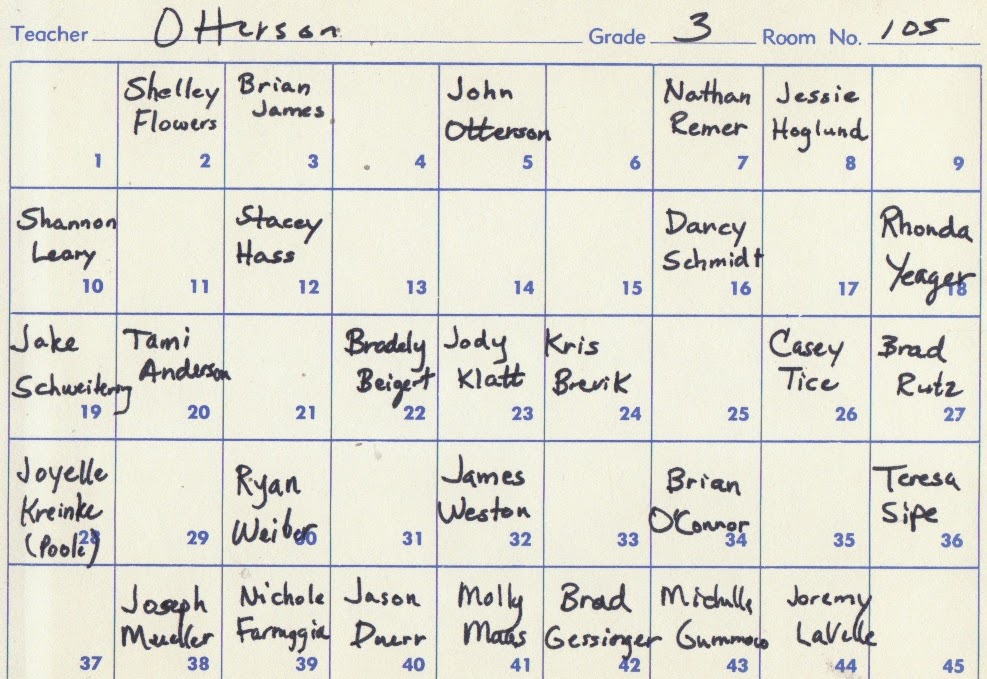 Teacher Otterson Grade 3 Room No. 105
1
Shelley
Flowers
2
Brian
James
3
4
John
Otterson
5
6
Nathan
Remer
7
Jessie
Hoglund
8
9
Shannon
Leary
10
11
Stacey
Hass
12
13
14
15
Darcy
Schmidt
16
17
Rhonda
Yeager
18
Jake
Schweitering
19
Tami
Anderson
20
21
Bradely
Beigert
22
Jody
Klatt
23
Kris
Brevik
24
25
Casey
Tice
26
Brad
Rutz
27
Joyelle
Kreinke
(Poole)
28
29
Ryan
30
31
James
Weston
32
33
Brian
O'Connor
34
35
Teresa
Sipe
36
37
Joseph
Mueller
38
Nichole
Farruggia
39
Jason
Duerr
40
Molly
Maas
41
Brad
Gessinger
42
Michelle
43
Joremy
LaVelle
44
45